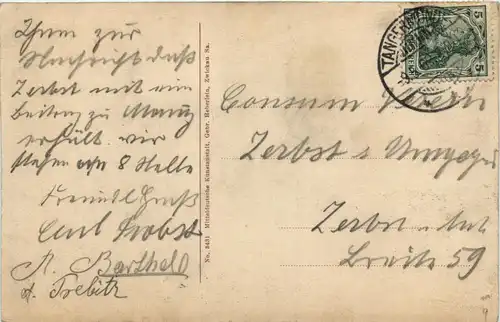 Ihnen zur
Nachricht daß
Zerbst mit eine
Beitrag zu
erhält. wir
stehen an 8 Stelle
Freundl. Gruß
Carl Probst
A. Barthel
d. Trebitz
No. 9431 Mitteldeutsche Kunstanstalt, Gebr. Heberlein, Zwickau Sa.
TANGERMÜNDE
5 5
Consum Verein
Zerbst u Umgegend
Zerbst Anh
Breite 59